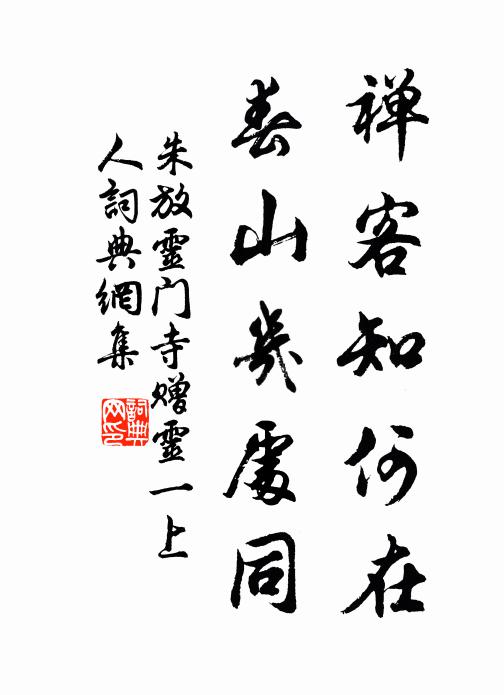 禅客知何在
春山几處同
朱放靈门寺赠靈一上
人詞典網集
詞典
网印